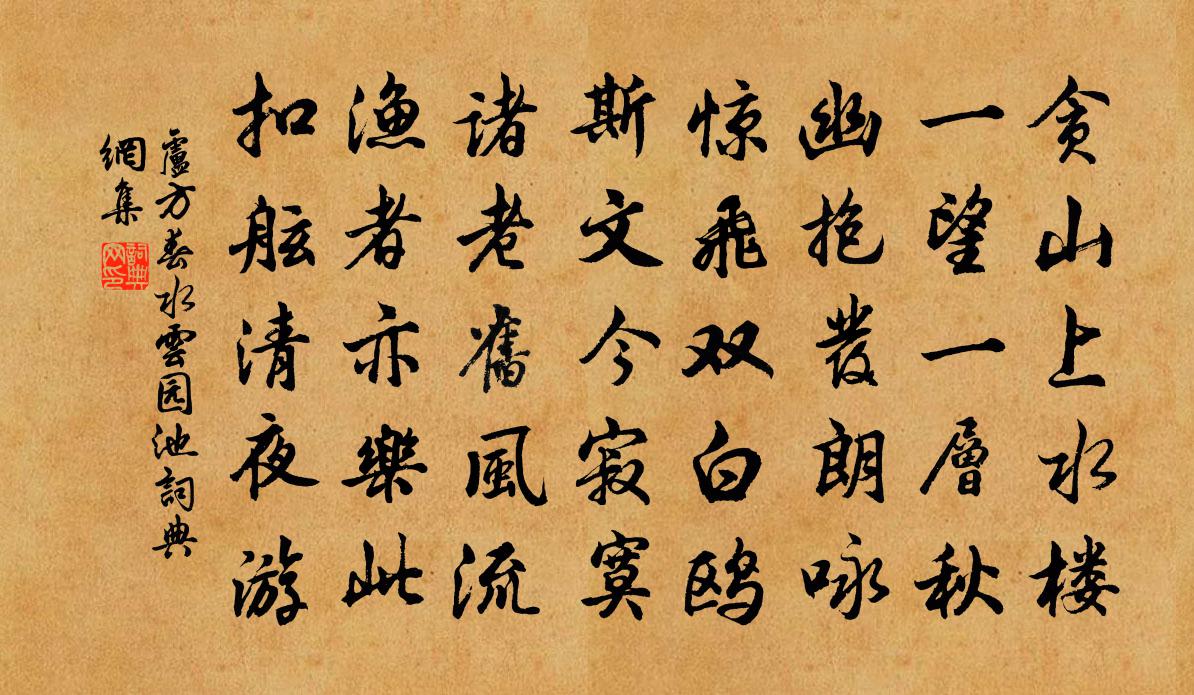 贪山上水楼
一望一層秋
幽抱發朗咏
惊飛双白鸥
斯文今寂寞
诸老舊風流
渔者亦樂此
扣舷清夜游
盧方春水雲园池詞典
網集
詞典
网印